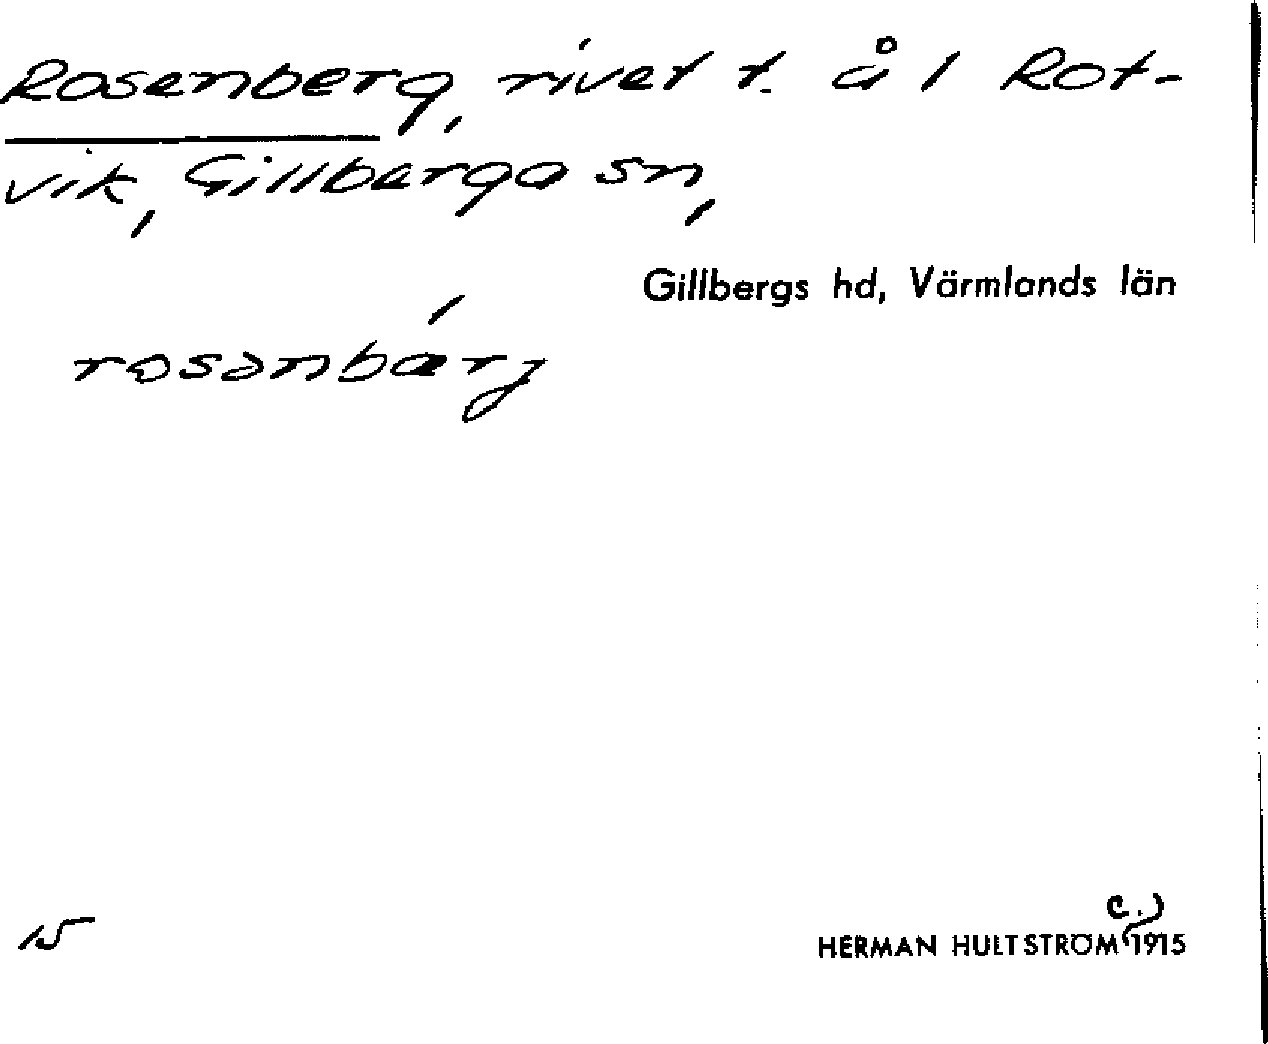 Rosenberg, rivet t. å 1 Rot-
vik, Gillberga sn,
Gillbergs hd, Värmlands län
rosənbærj
15
HERMAN HULTSTRÖM (c.) 1915